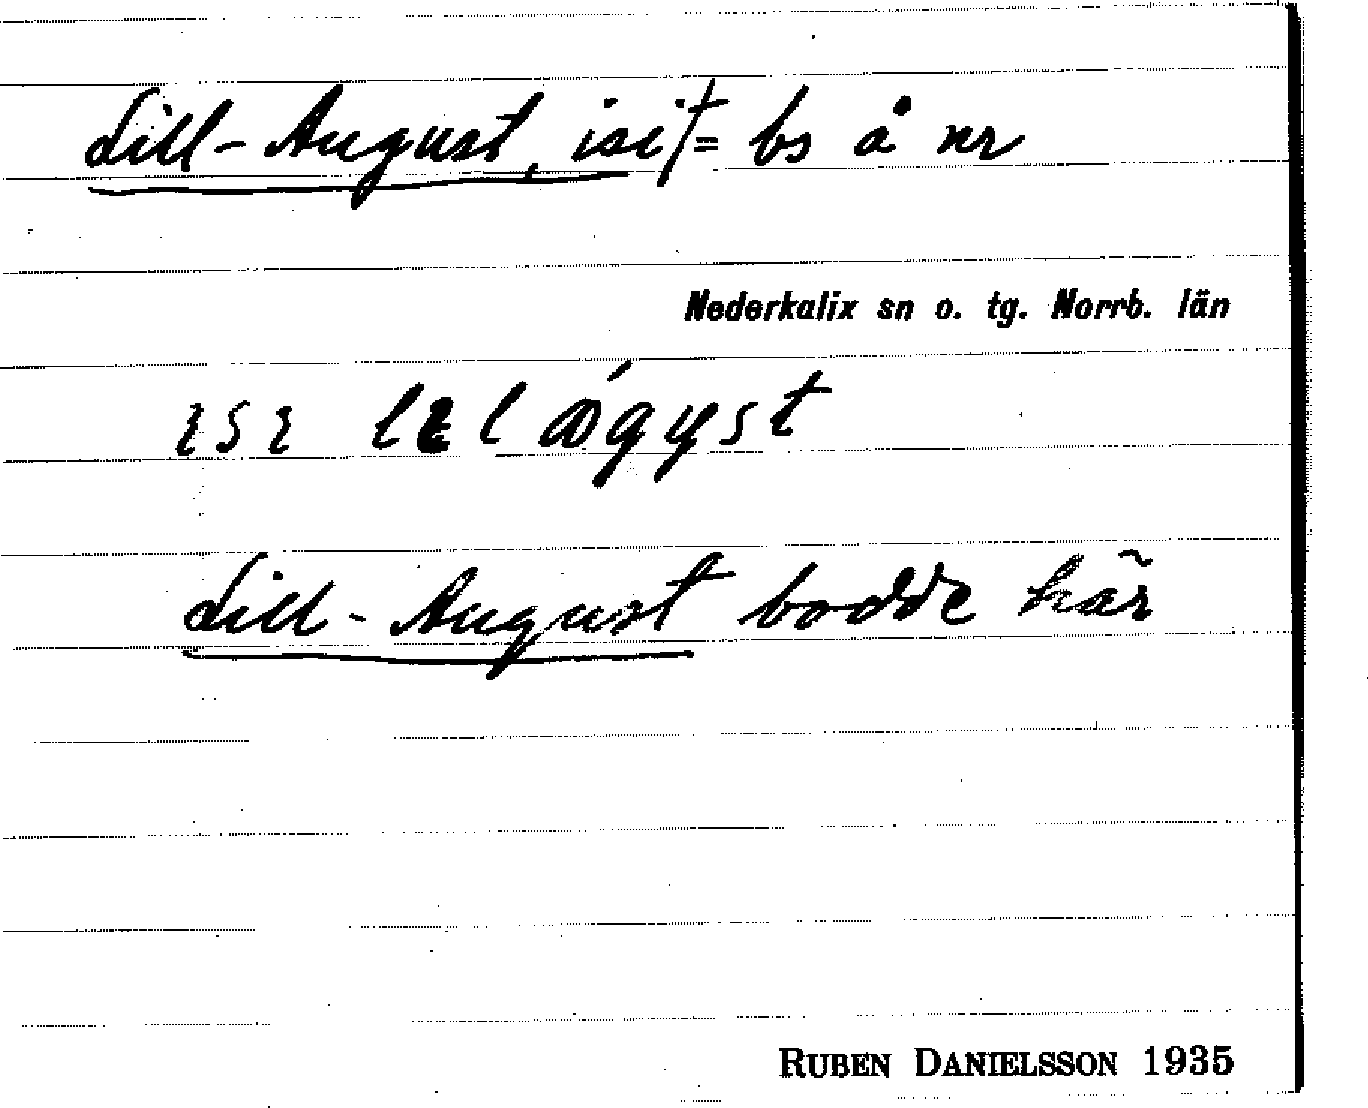 Lill-August, isi † = bs å nr
Nederkalix sn o. tg. Norrb. län
ısı lɩl ágyst
Lill-August bodde här
RUBEN DANIELSSON 1935